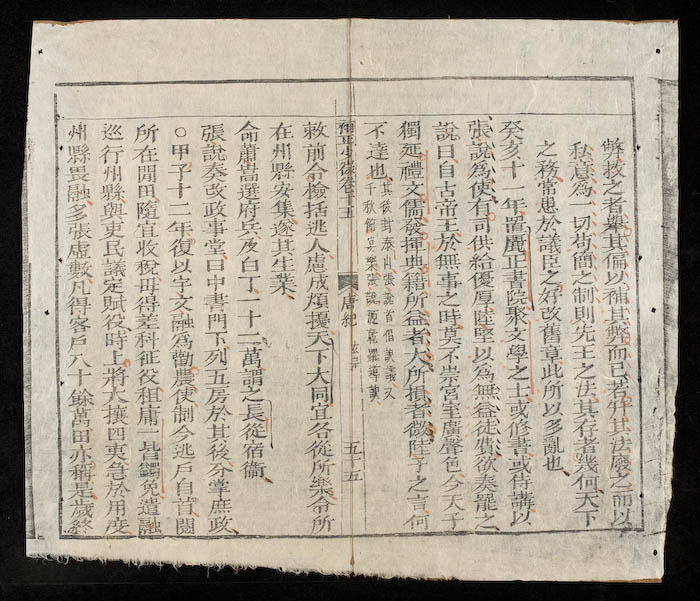 弊救之者舉其偏以補其弊而已若并其法廢之而以
私意為一切苟簡之制則先王之法其存者幾何天下
之務常患於議臣之好改舊章此所以多亂也
癸亥十一年置麗正書院聚文學之士或修書或侍講以
張說為使有司供給優厚陸堅以為無益徒費欲奏罷之
說曰自古帝王於無事之時莫不崇宮室廣聲色今天子
獨延禮文儒發揮典籍所益者大所損者微陸子之言何
不達也其後封泰山張說首倡其議又
千秋節宴樂張說
唐紀 玄宗 五十五
敕前令檢括逃人慮成煩擾天下大同宜各從所樂令所
在州縣安集遂其生業
命蕭嵩選府兵及白丁一十二萬謂之長從宿衞
張說奏改政事堂曰中書門下列五房於其後分掌庶政
○甲子十二年復以宇文融為勸農使制今逃戶自首闢
所在閒田隨宜收稅毋得差科征役租庸一皆蠲免遣融
巡行州縣與吏民議定賦役時上將大攘四夷急於用度
州縣畏融多張虛數凡得客戶八十餘萬田亦稱是歲終